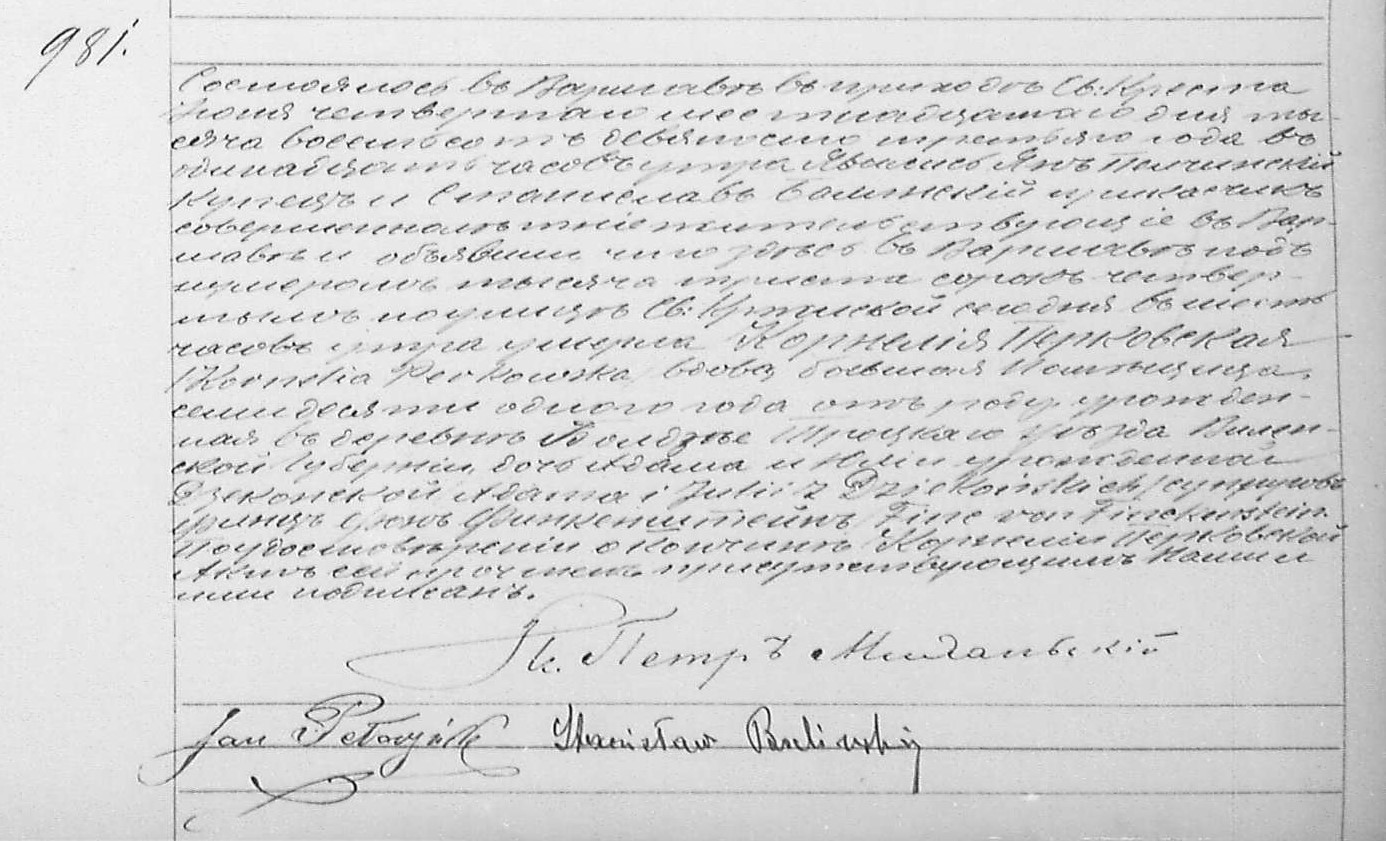 981.
Состоялось въ Варшавѣ въ приходѣ Св: Креста
Іюня четвертаго шестнадцатаго дня ты-
сяча восемьсотъ девяносто третьяго года въ
одинадцать часовъ утра Явились Янъ Пелчинскій
Купецъ и Станиславъ Балинскій прикащикъ
совершеннолѣтніе жительствующіе въ Вар-
шавѣ и объявили что здѣсь въ Варшавѣ подъ
нумеромъ тысяча триста сорокъ четвер-
тымъ по улицѣ Св: Кржиской сегодня въ шесть
часовъ утра умерла Корнелія Перковская
/Kornelia Perkowska/ вдова бывшая Помѣщица,
семидесяти одного года отъ роду, урожден-
ная въ деревнѣ Троцкаго Уѣзда Вилен-
ской Губерніи, дочь Адама и Юліи урожденной
Дзеконской Adama i Julii z Dziekońskich/ супруговъ
фонъ Финкенштейнъ /Finc von Finckenstein.
По удостовѣреніи о Кончинѣ Корнеліи Перковской
Актъ сей прочтенъ присутствующимъ Нами и
ими подписанъ.
Кс. Петръ
Jan Stanisław Baliński